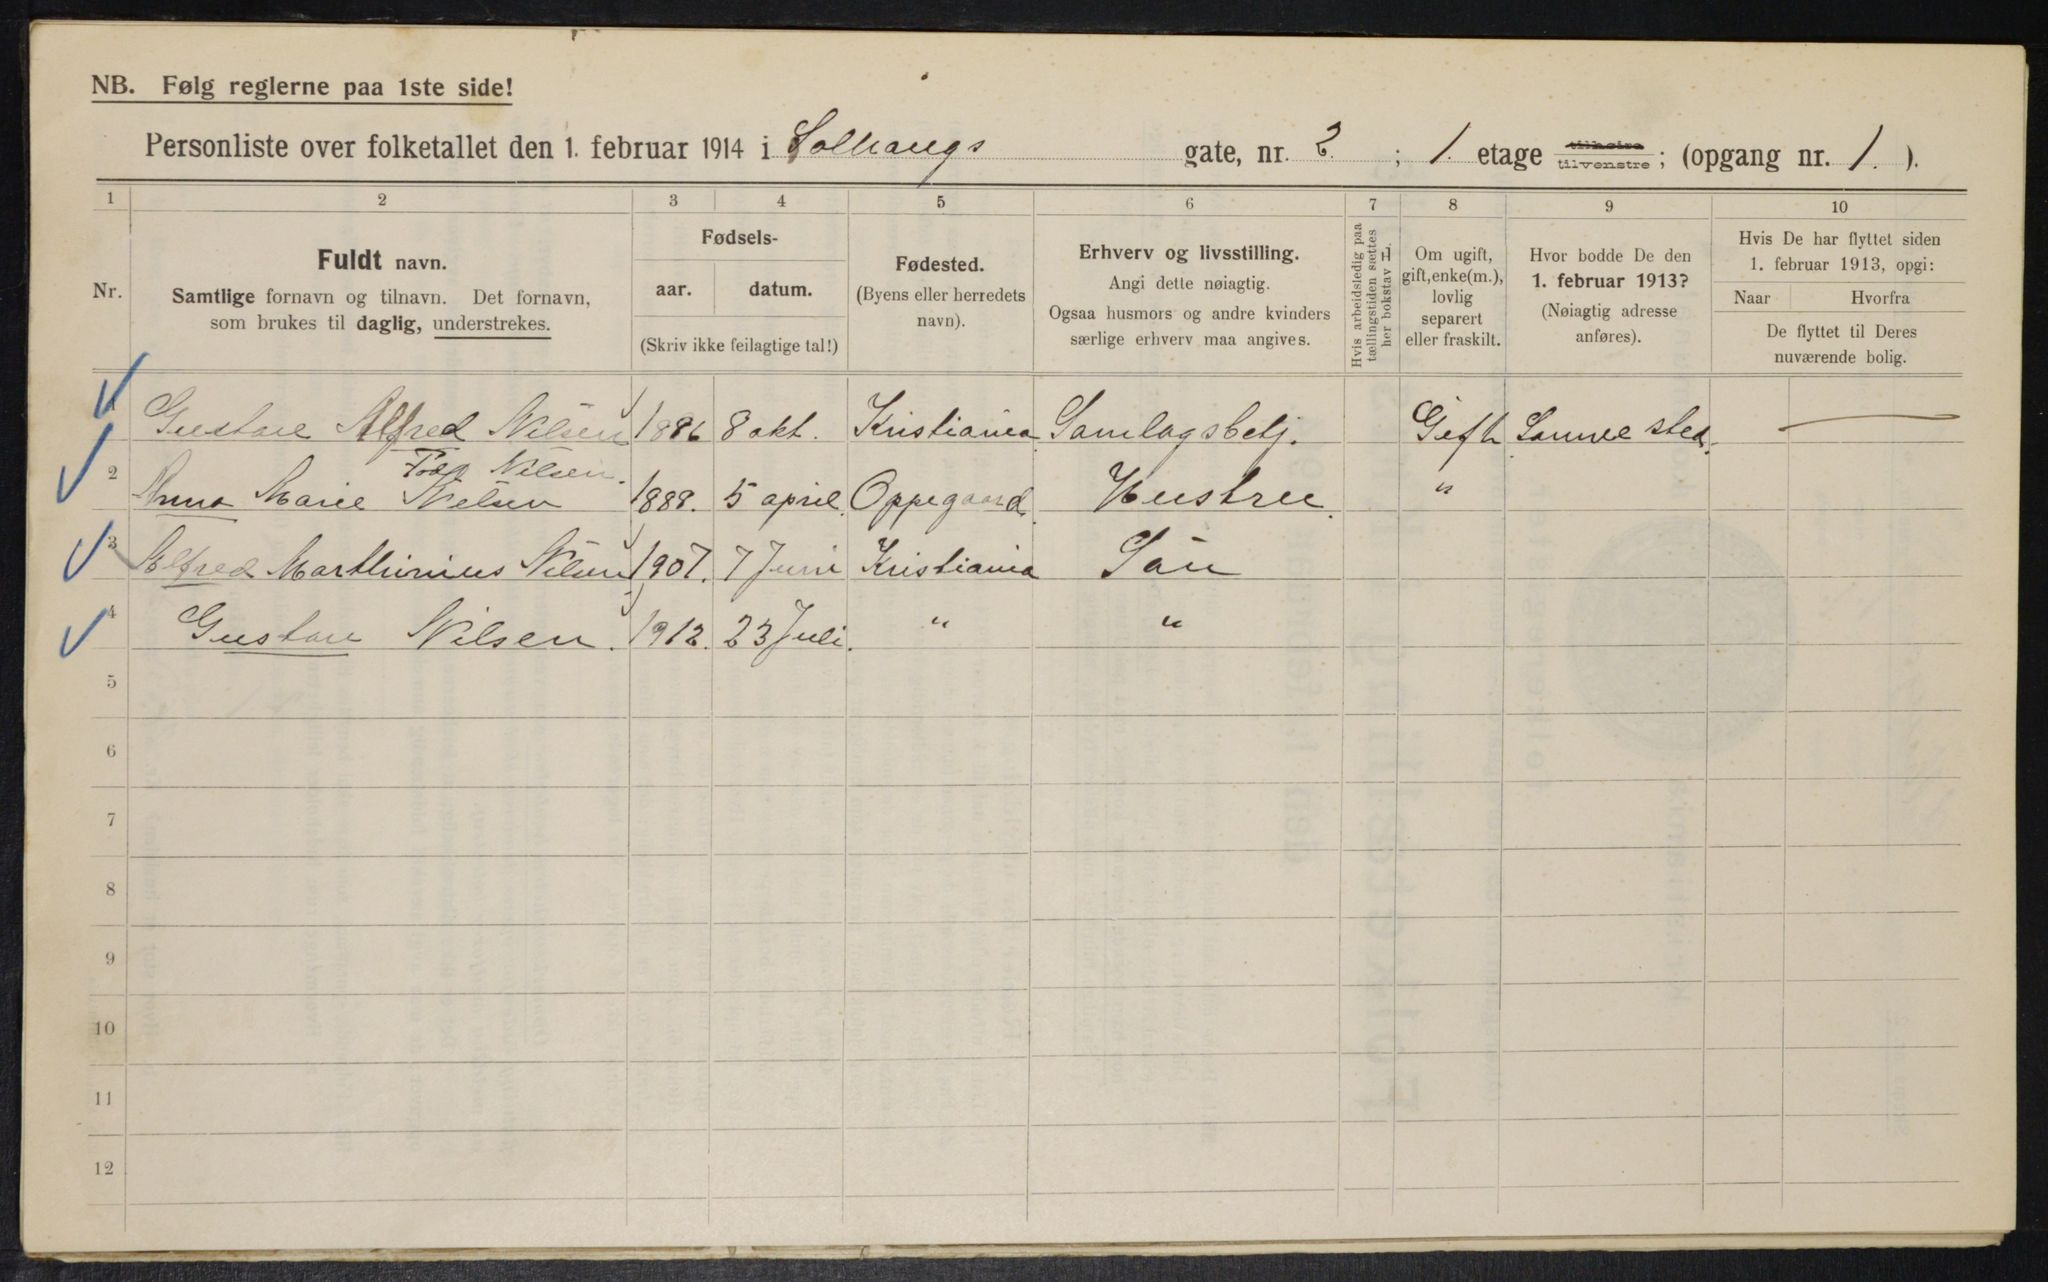 NB. Følg reglerne paa 1ste side!
Personliste over folketallet den 1. februar 1914 i Solhaugs gate, nr. 2. ; 1. etage tilhøire tilvenstre ; (opgang nr. 1. ).
1 2 3 4 5 6 7 8 9 10
Nr.
Fuldt navn.
Samtlige fornavn og tilnavn. Det fornavn,
som brukes til daglig, understrekes.
Fødsels-
aar. datum.
(Skriv ikke feilagtige tal!)
Fødested.
(Byens eller herredets
navn).
Erhverv og livsstilling.
Angi dette nøiagtig.
Ogsaa husmors og andre kvinders
særlige erhverv maa angives.
Hvis arbeidsledig paa
tællingstiden sættes
her bokstav L.
Om ugift,
gift, enke(m.),
lovlig
separert
eller fraskilt.
Hvor bodde De den
1. februar 1913?
(Nøiagtig adresse
anføres).
Hvis De har flyttet siden
1. februar 1913, opgi:
Naar Hvorfra
De flyttet til Deres
nuværende bolig.
1 Gustave Alfred Nilsen 1886 8 okt. Kristiania Samlagsbetj. Gift Samme sted.
Född Nilsen.
2 Anna Marie Nielsen 1888. 5 april. Oppegaard. Hustru. "
3 Alfred Marthinius Nilsen 1907. 7 Juni Kristiania Sön
4 Gustav Nilsen. 1912. 23 Juli. " "
5
6
7
8
9
10
11
12